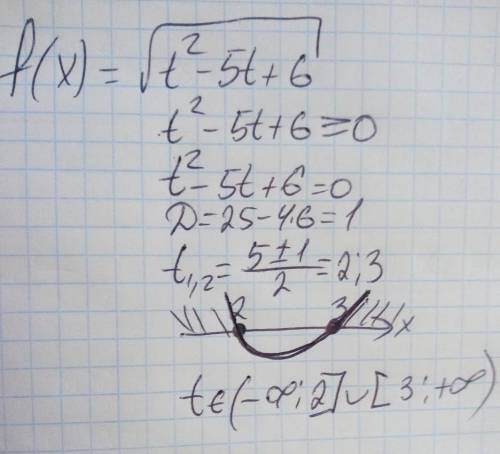 f(x) = √(t² - 5t + 6)
t² - 5t + 6 ≥ 0
t² - 5t + 6 = 0
D = 25 - 4·6 = 1
t₁,₂ = (5 ± 1)/2 = 2; 3
2 3 x
t ∈ (-∞; 2] ∪ [3; +∞)